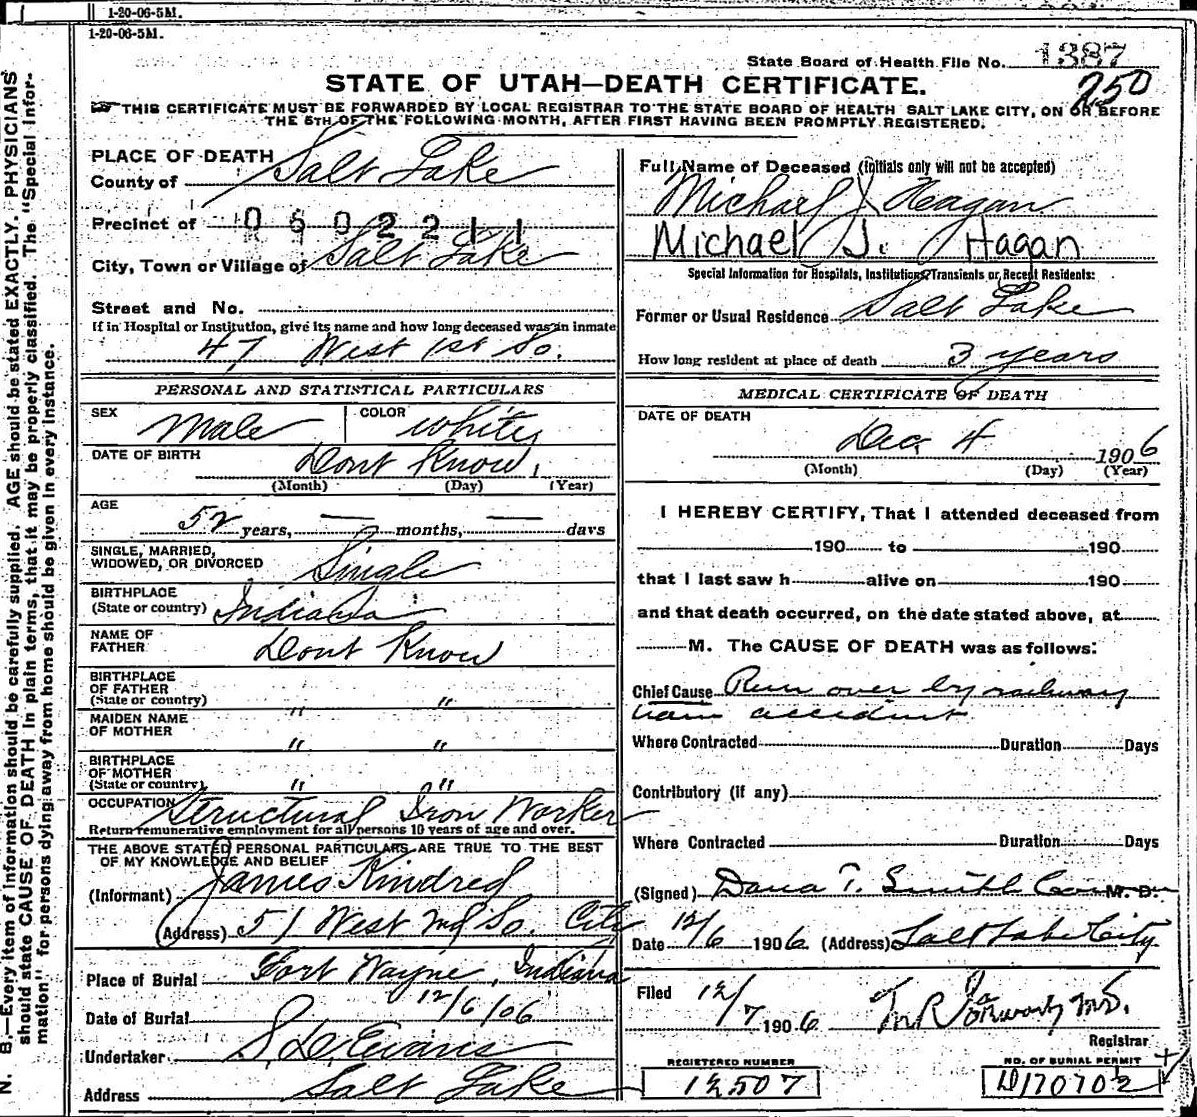 1-20-06-5M.
1-20-06-5M.
State Board of Health File No. 1387
250
STATE OF UTAH—DEATH CERTIFICATE.
THIS CERTIFICATE MUST BE FORWARDED BY LOCAL REGISTRAR TO THE STATE BOARD OF HEALTH SALT LAKE CITY, ON OR BEFORE
THE 5TH OF THE FOLLOWING MONTH, AFTER FIRST HAVING BEEN PROMPTLY REGISTERED.
N. B.—Every item of information should be carefully supplied. AGE should be stated EXACTLY. PHYSICIANS
should state CAUSE OF DEATH in plain terms, that it may be properly classified. The "Special Infor-
mation" for persons dying away from home should be given in every instance.
PLACE OF DEATH
County of Salt Lake
Precinct of 0602211
City, Town or Village of Salt Lake
Street and No.
If in Hospital or Institution, give its name and how long deceased was an inmate
47 West 1st So.
PERSONAL AND STATISTICAL PARTICULARS
SEX Male COLOR White
DATE OF BIRTH Dont Know
(Month) (Day) (Year)
AGE 52 years, — months, — days
SINGLE, MARRIED,
WIDOWED, OR DIVORCED Single
BIRTHPLACE
(State or country) Indiana
NAME OF
FATHER Dont Know
BIRTHPLACE
OF FATHER
(State or country) " "
MAIDEN NAME
OF MOTHER " "
BIRTHPLACE
OF MOTHER
(State or country) " "
OCCUPATION Structural Iron Worker
Return remunerative employment for all persons 10 years of age and over.
THE ABOVE STATED PERSONAL PARTICULARS ARE TRUE TO THE BEST
OF MY KNOWLEDGE AND BELIEF
(Informant) James Kindred
(Address) 51 West 2nd So. City
Place of Burial Fort Wayne, Indiana
Date of Burial 12/6/06
Undertaker S. D. Evans
Address Salt Lake
Full Name of Deceased (initials only will not be accepted)
Michael J Hagan
Michael J. Hagan
Special Information for Hospitals, Institutions, Transients or Recent Residents:
Former or Usual Residence Salt Lake
How long resident at place of death 3 years
MEDICAL CERTIFICATE OF DEATH
DATE OF DEATH
Dec. 4 1906
(Month) (Day) (Year)
I HEREBY CERTIFY, That I attended deceased from
190 to 190
that I last saw h alive on 190
and that death occurred, on the date stated above, at
M. The CAUSE OF DEATH was as follows:
Chief Cause Run over by railway
train accident
Where Contracted Duration Days
Contributory (if any)
Where Contracted Duration Days
(Signed) Dana T. Smith M. D.
Date 12/6 1906 (Address) Salt Lake City
Filed 12/7 1906 M.D.
Registrar
REGISTERED NUMBER
12507
NO. OF BURIAL PERMIT
D170702